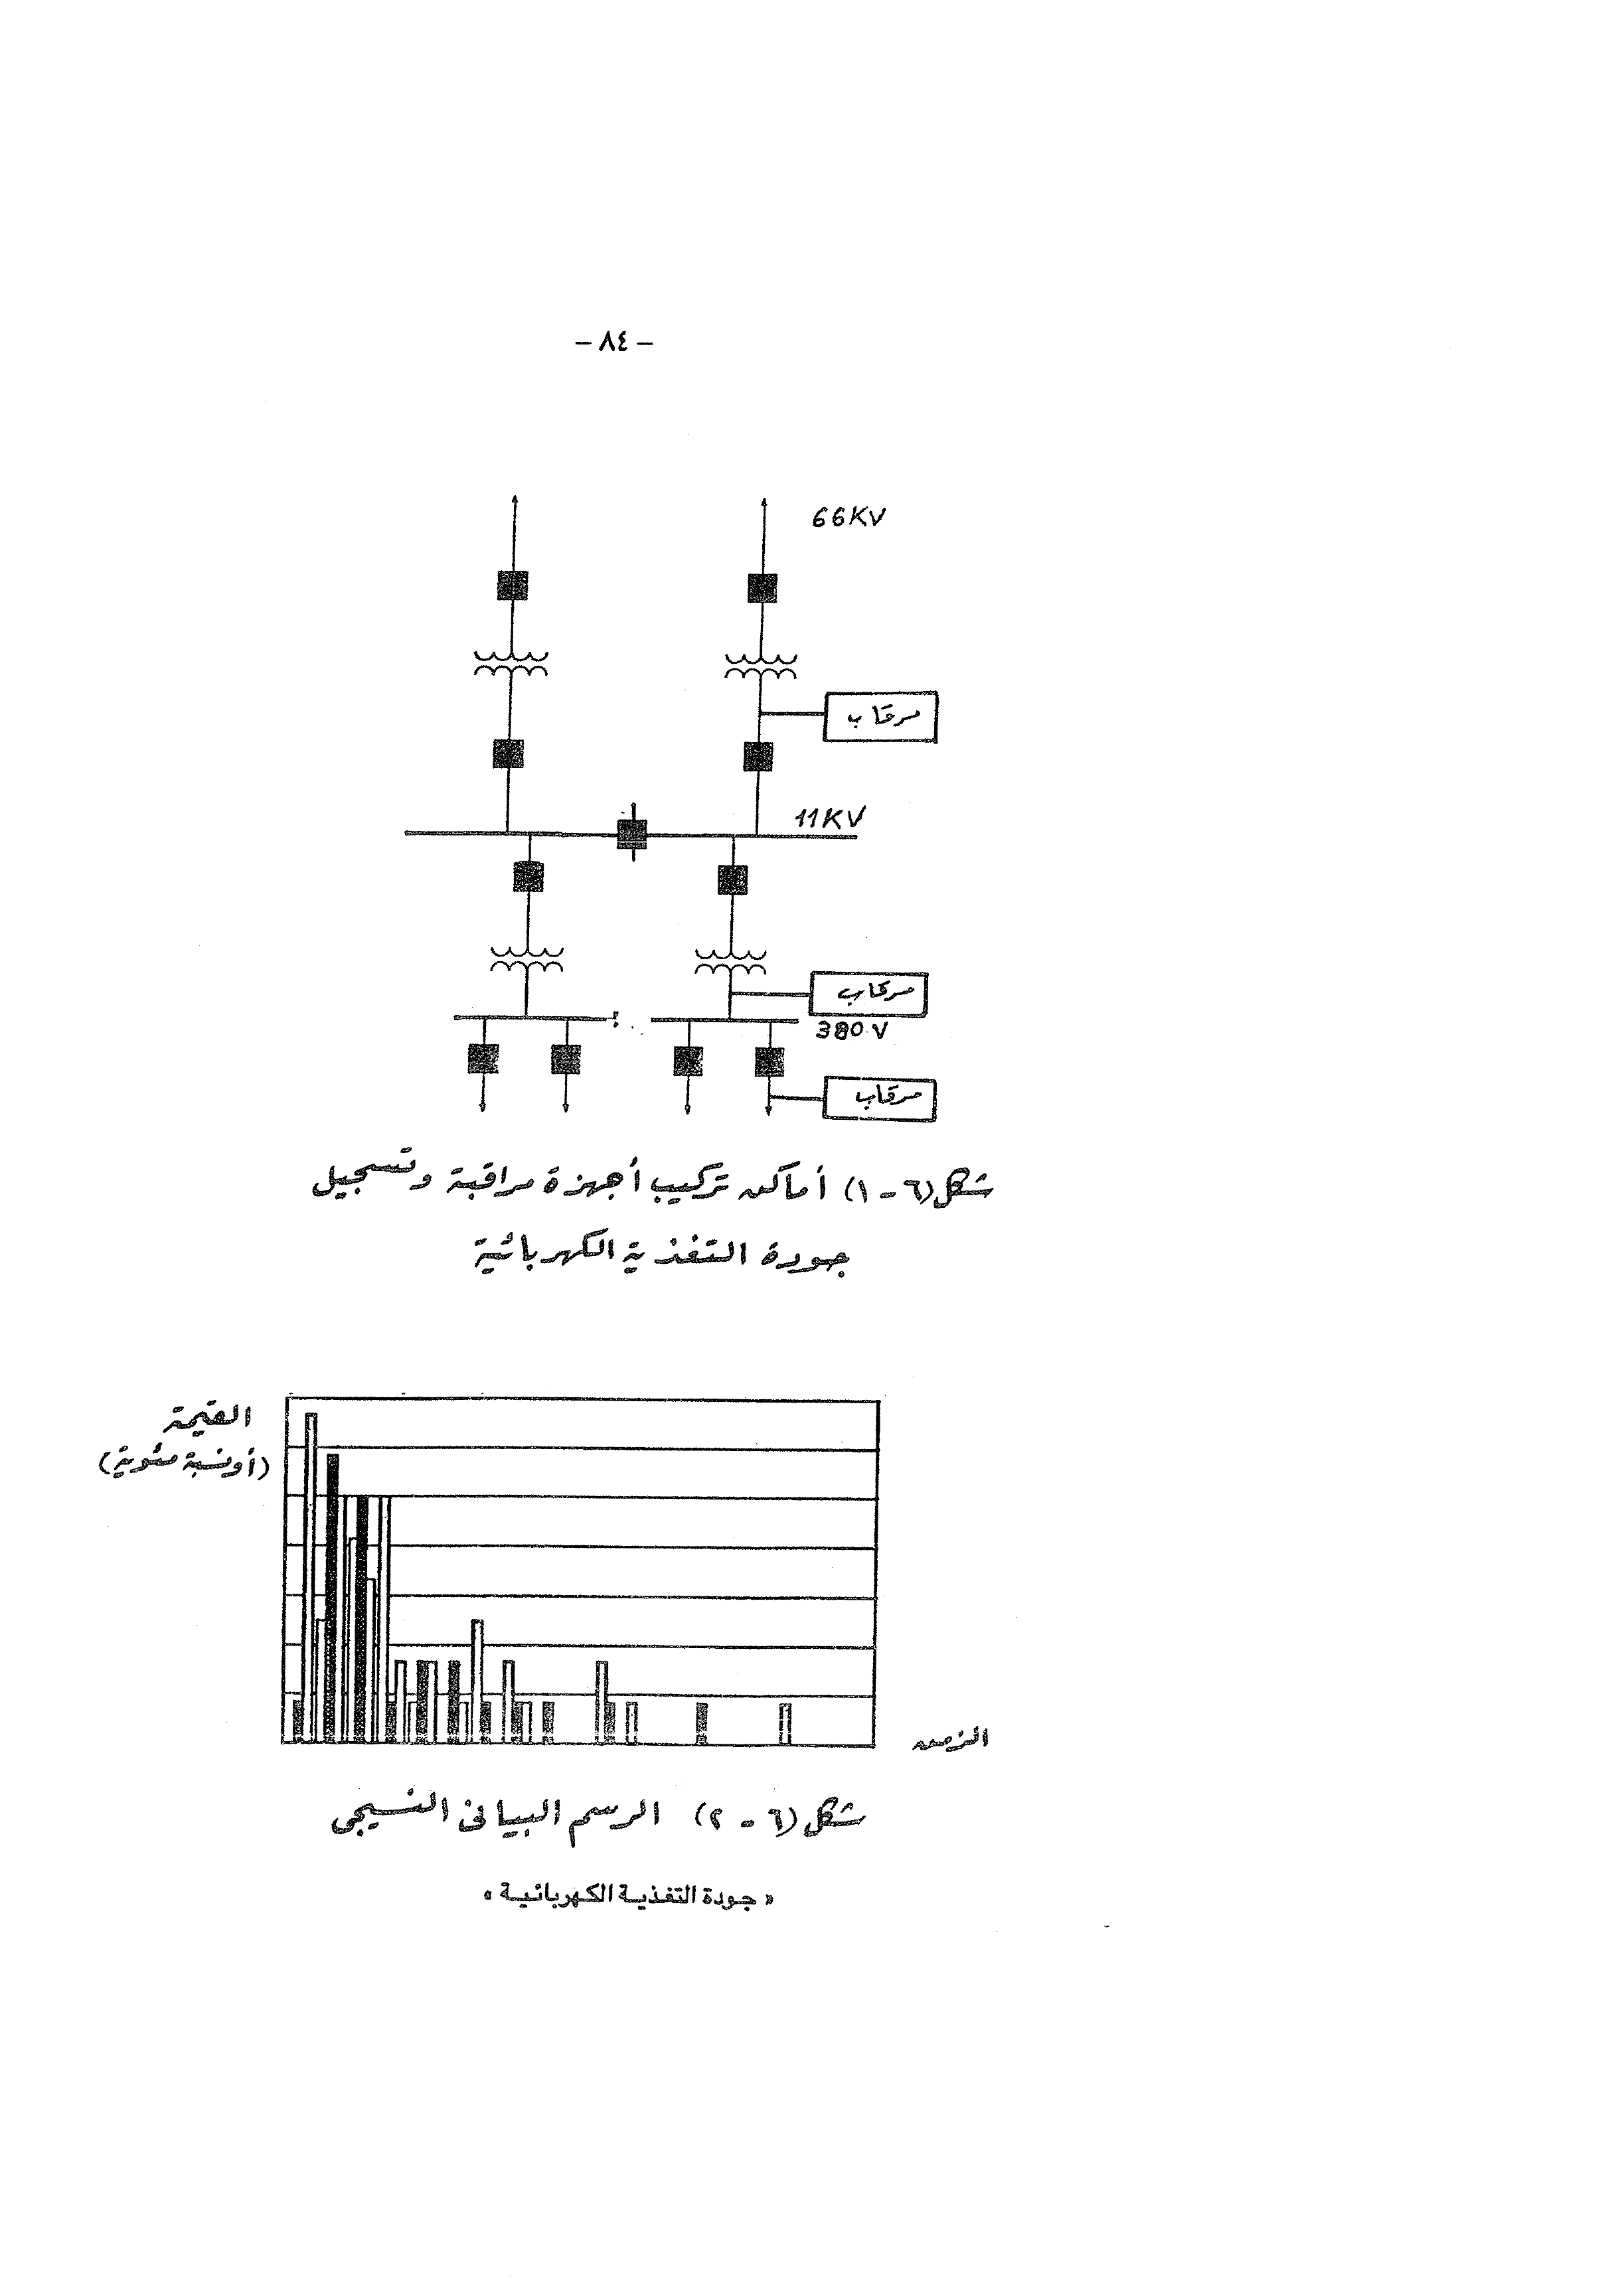 – ٨٤ –
66KV
مرقاب
11KV
مرقاب
380 V
مرقاب
شكل (٦ - ١) أماكن تركيب أجهزة مراقبة وتسجيل
جودة التغذية الكهربائية
القيمة
(أونسبة مئوية)
الزمن
شكل (٦ - ٢) الرسم البيانى النسيجى
« جودة التغذية الكهربائية »